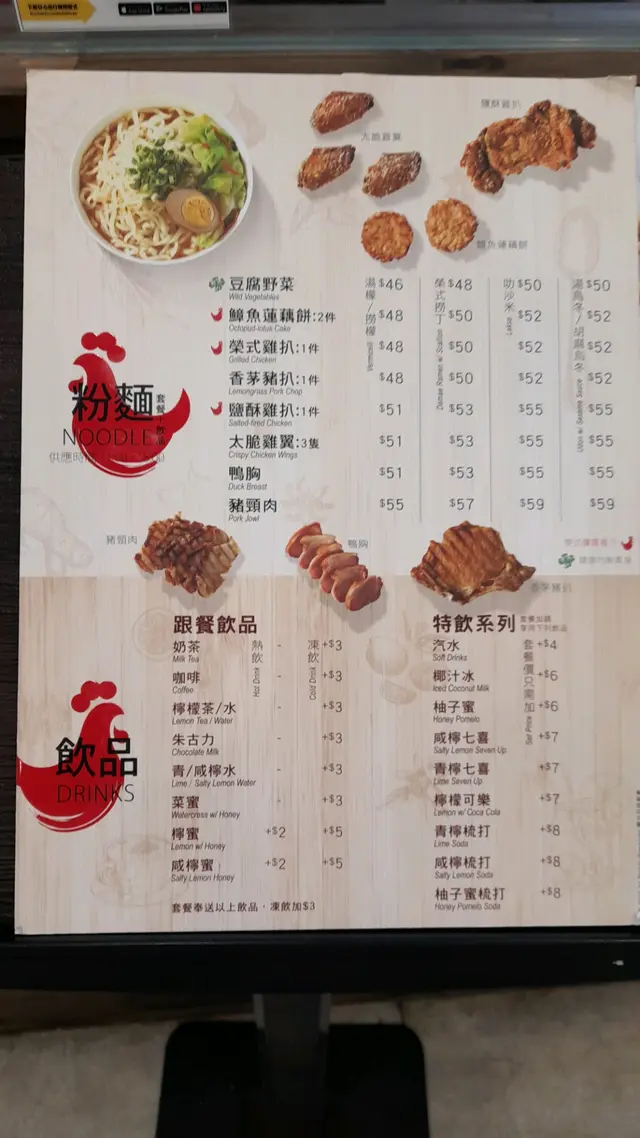 鹽酥雞扒
太脆雞翼
章魚蓮藕餅
湯檬/撈檬
Vermicelli
榮式撈丁
叻沙米
Laksa
湯烏冬/胡麻烏冬
Udon w/ Sesame Sauce
豆腐野菜 $46 $48 $50 $50
Wild Vegetables
鱆魚蓮藕餅:2件 $48 $50 $52 $52
Octopud-lotus Cake
榮式雞扒:1件 $48 $50 $52 $52
Grilled Chicken
香茅豬扒:1件 $48 $50 $52 $52
Lemongrass Pork Chop
鹽酥雞扒:1件 $51 $53 $55 $55
Salted-fired Chicken
太脆雞翼:3隻 $51 $53 $55 $55
Crispy Chicken Wings
鴨胸 $51 $53 $55 $55
Duck Breast
豬頸肉 $55 $57 $59 $59
Pork Jowl
粉麵
NOODLE
供應時間
豬頸肉
鴨胸
香茅豬扒
跟餐飲品
熱飲
Hot Drink
凍飲
Cold Drink
奶茶 - +$3
Milk Tea
咖啡 - +$3
Coffee
檸檬茶/水 - +$3
Lemon Tea / Water
朱古力 - +$3
Chocolate Milk
青/咸檸水 - +$3
Lime / Salty Lemon Water
菜蜜 - +$3
Watercress w/ Honey
檸蜜 +$2 +$5
Lemon w/ Honey
咸檸蜜 +$2 +$5
Salty Lemon Honey
套餐奉送以上飲品·凍飲加$3
飲品
DRINKS
特飲系列
套餐加錢
享用下列飲品
套餐價只需加
Set Price
汽水 +$4
Soft Drinks
椰汁冰 +$6
Iced Coconut Milk
柚子蜜 +$6
Honey Pomelo
咸檸七喜 +$7
Salty Lemon Seven Up
青檸七喜 +$7
Lime Seven Up
檸檬可樂 +$7
Lemon w/ Coca Cola
青檸梳打 +$8
Lime Soda
咸檸梳打 +$8
Salty Lemon Soda
柚子蜜梳打 +$8
Honey Pomelo Soda